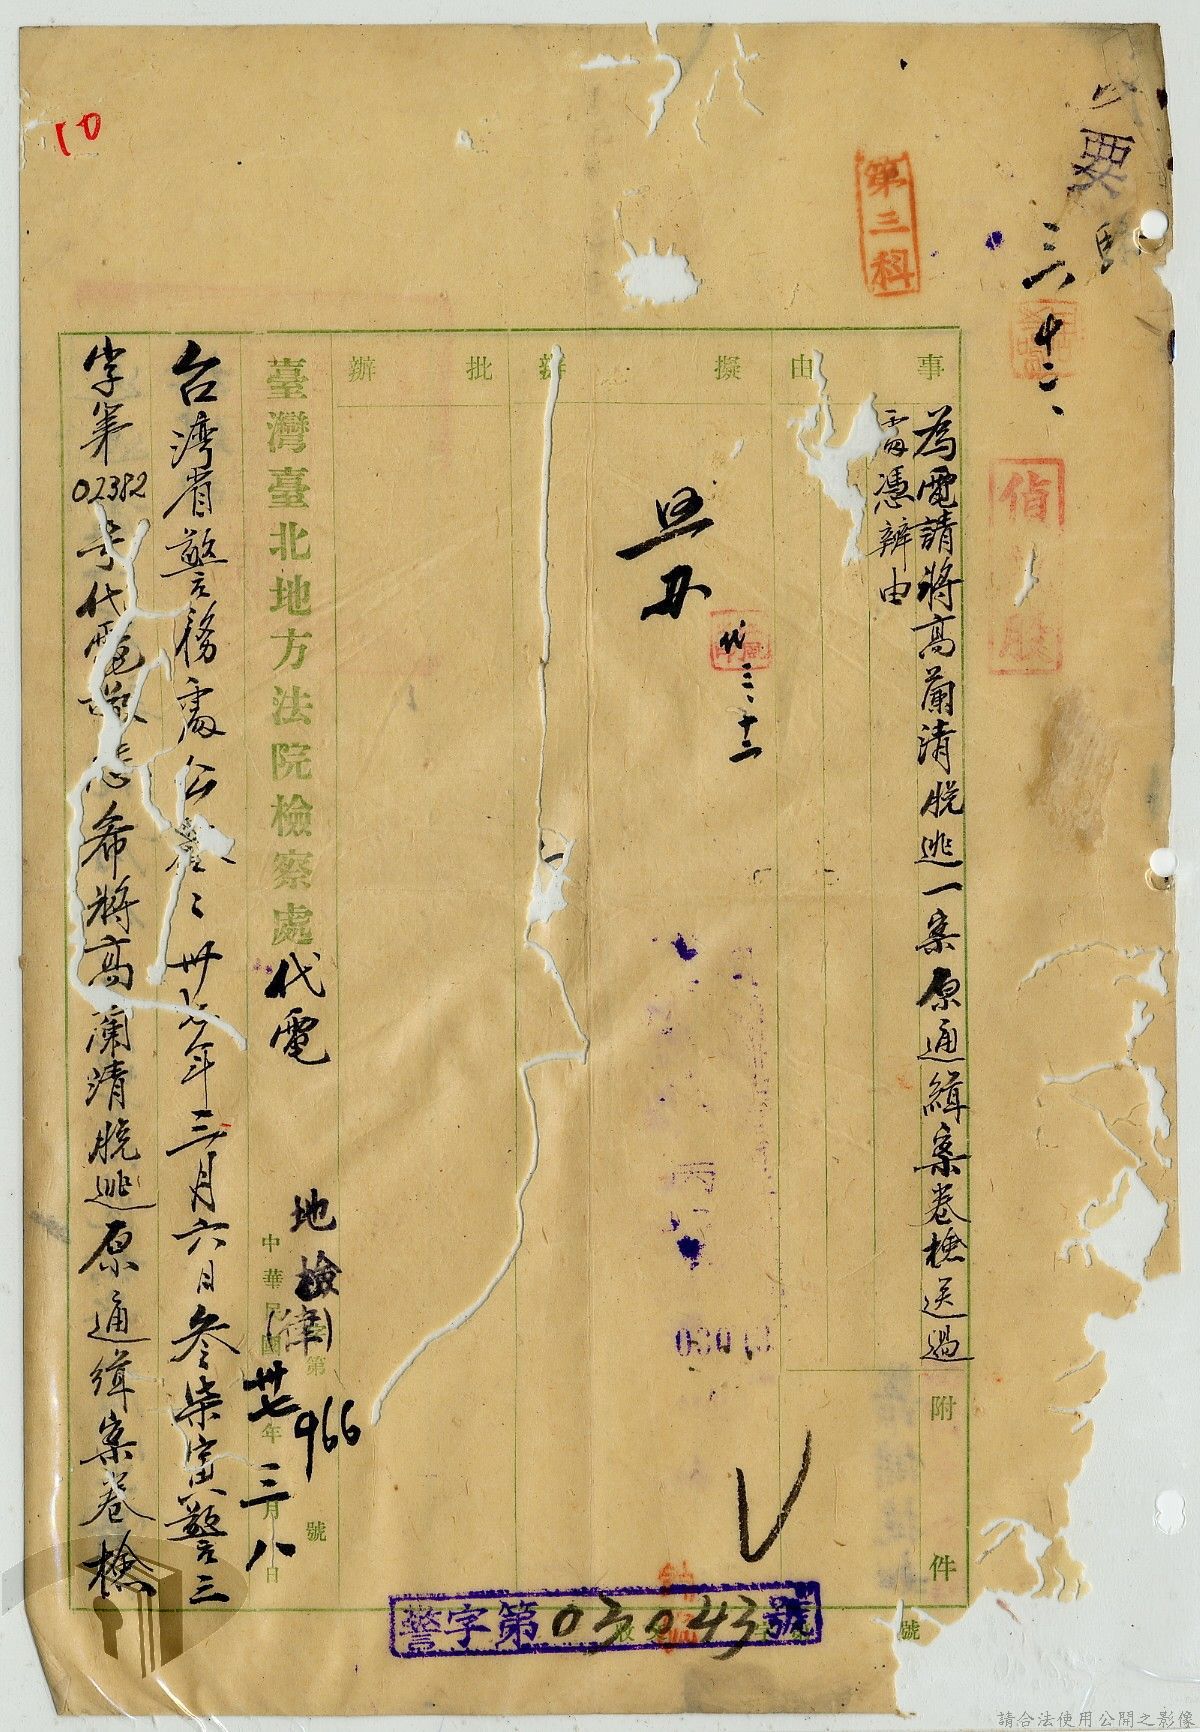 10
要
三、十二、
第三科
偵
股
事
由
擬
辦
批
辦
為電請將高蘭清脫逃一案原通緝案卷檢送過
處憑辦由
附
件
代 三、十二
丙
臺灣臺北地方法院檢察處代電
地檢(律)字第966號
中華民國卅七年三月八日
台湾省警務處公鑒:卅七年三月六日叁柒寅警三
字第02382号代電敬悉希將高蘭清脫逃原通緝案卷檢
警字第03043號
收文
字
號
請合法使用公開之影像